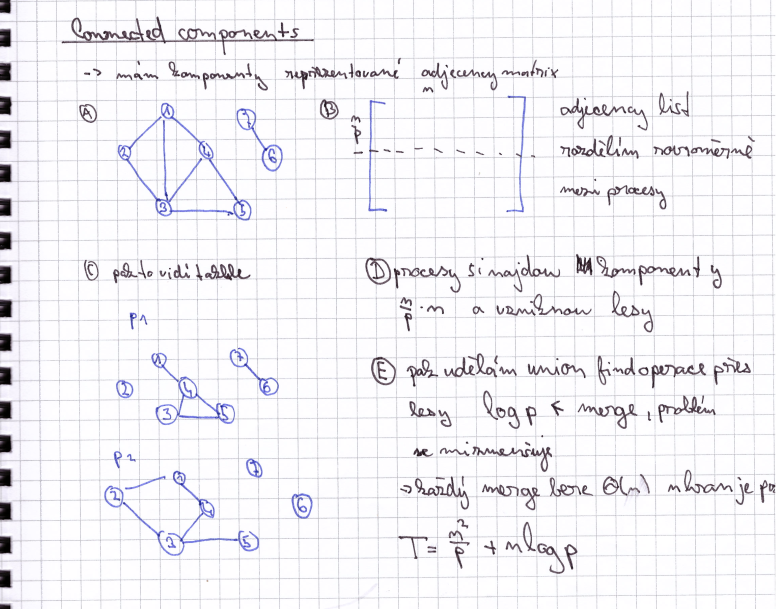 Connected components
-> mám komponenty reprezentované adjecency matrix
A
1
2
4
3
5
7
6
B
n
n/p
adjecency list
rozdělím rovnoměrně
mezi procesy
C pak to vidí takhle
P1
1
7
2
4
6
3
5
P2
7
2
4
6
5
D procesy si najdou komponenty
n/p · n a vzniknou lesy
E pak udělám union find operace přes
lesy log p merge, problém
se nezmenšuje
-> každý merge bere Θ(n) n hran je
T = n²/p + n log p